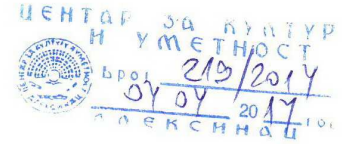 ЦЕНТАР ЗА КУЛТУР
И УМЕТНОСТ
Број 219/2017
04 04 2017 год
АЛЕКСИНАЦ